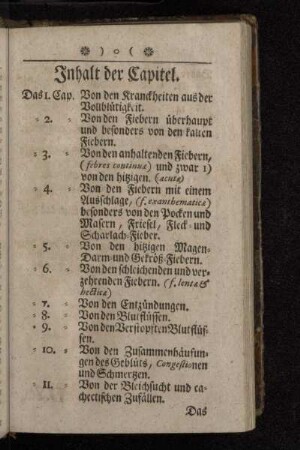 ❋ ) o ( ❋
Inhalt der Capitel.
Das 1. Cap. Von den Kranckheiten aus der
Vollblütigkeit.
" 2. " Von den Fiebern überhaupt
und besonders von den kalten
Fiebern.
" 3. " Von den anhaltenden Fiebern,
(febres continuæ) und zwar 1)
von den hitzigen. (acutæ)
" 4. " Von den Fiebern mit einem
Ausschlage, (f. exanthematicæ)
besonders von den Pocken und
Masern, Friesel, Fleck- und
Scharlach-Fieber.
" 5. " Von den hitzigen Magen-
Darm- und Gekröß-Fiebern.
" 6. " Von den schleichenden und ver-
zehrenden Fiebern. (f. lentæ &
hecticæ)
" 7. " Von den Entzündungen.
" 8. " Von den Blutflüssen.
" 9. " Von den Verstopften Blutflüs-
sen.
" 10. " Von den Zusammenhäufun-
gen des Geblüts, Congestionen
und Schmertzen.
" 11. " Von der Bleichsucht und ca-
chectischen Zufällen.
Das